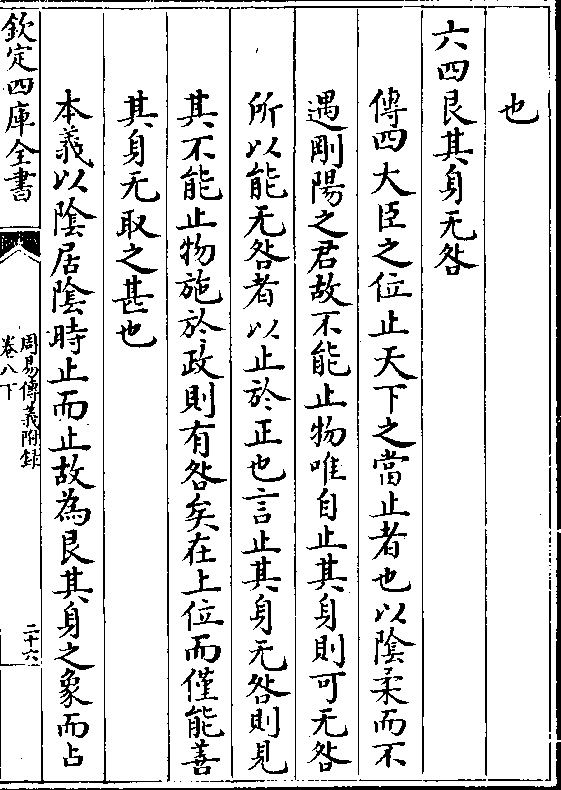 也
六四艮其身无咎
傳四大臣之位止天下之當止者也以陰柔而不
遇剛陽之君故不能止物唯自止其身則可无咎
所以能无咎者以止於正也言止其身无咎則見
其不能止物施於政則有咎矣在上位而僅能善
其身无取之甚也
本義以陰居陰時止而止故為艮其身之象而占
欽定四庫全書
周易傳義附錄
卷八下
二十六